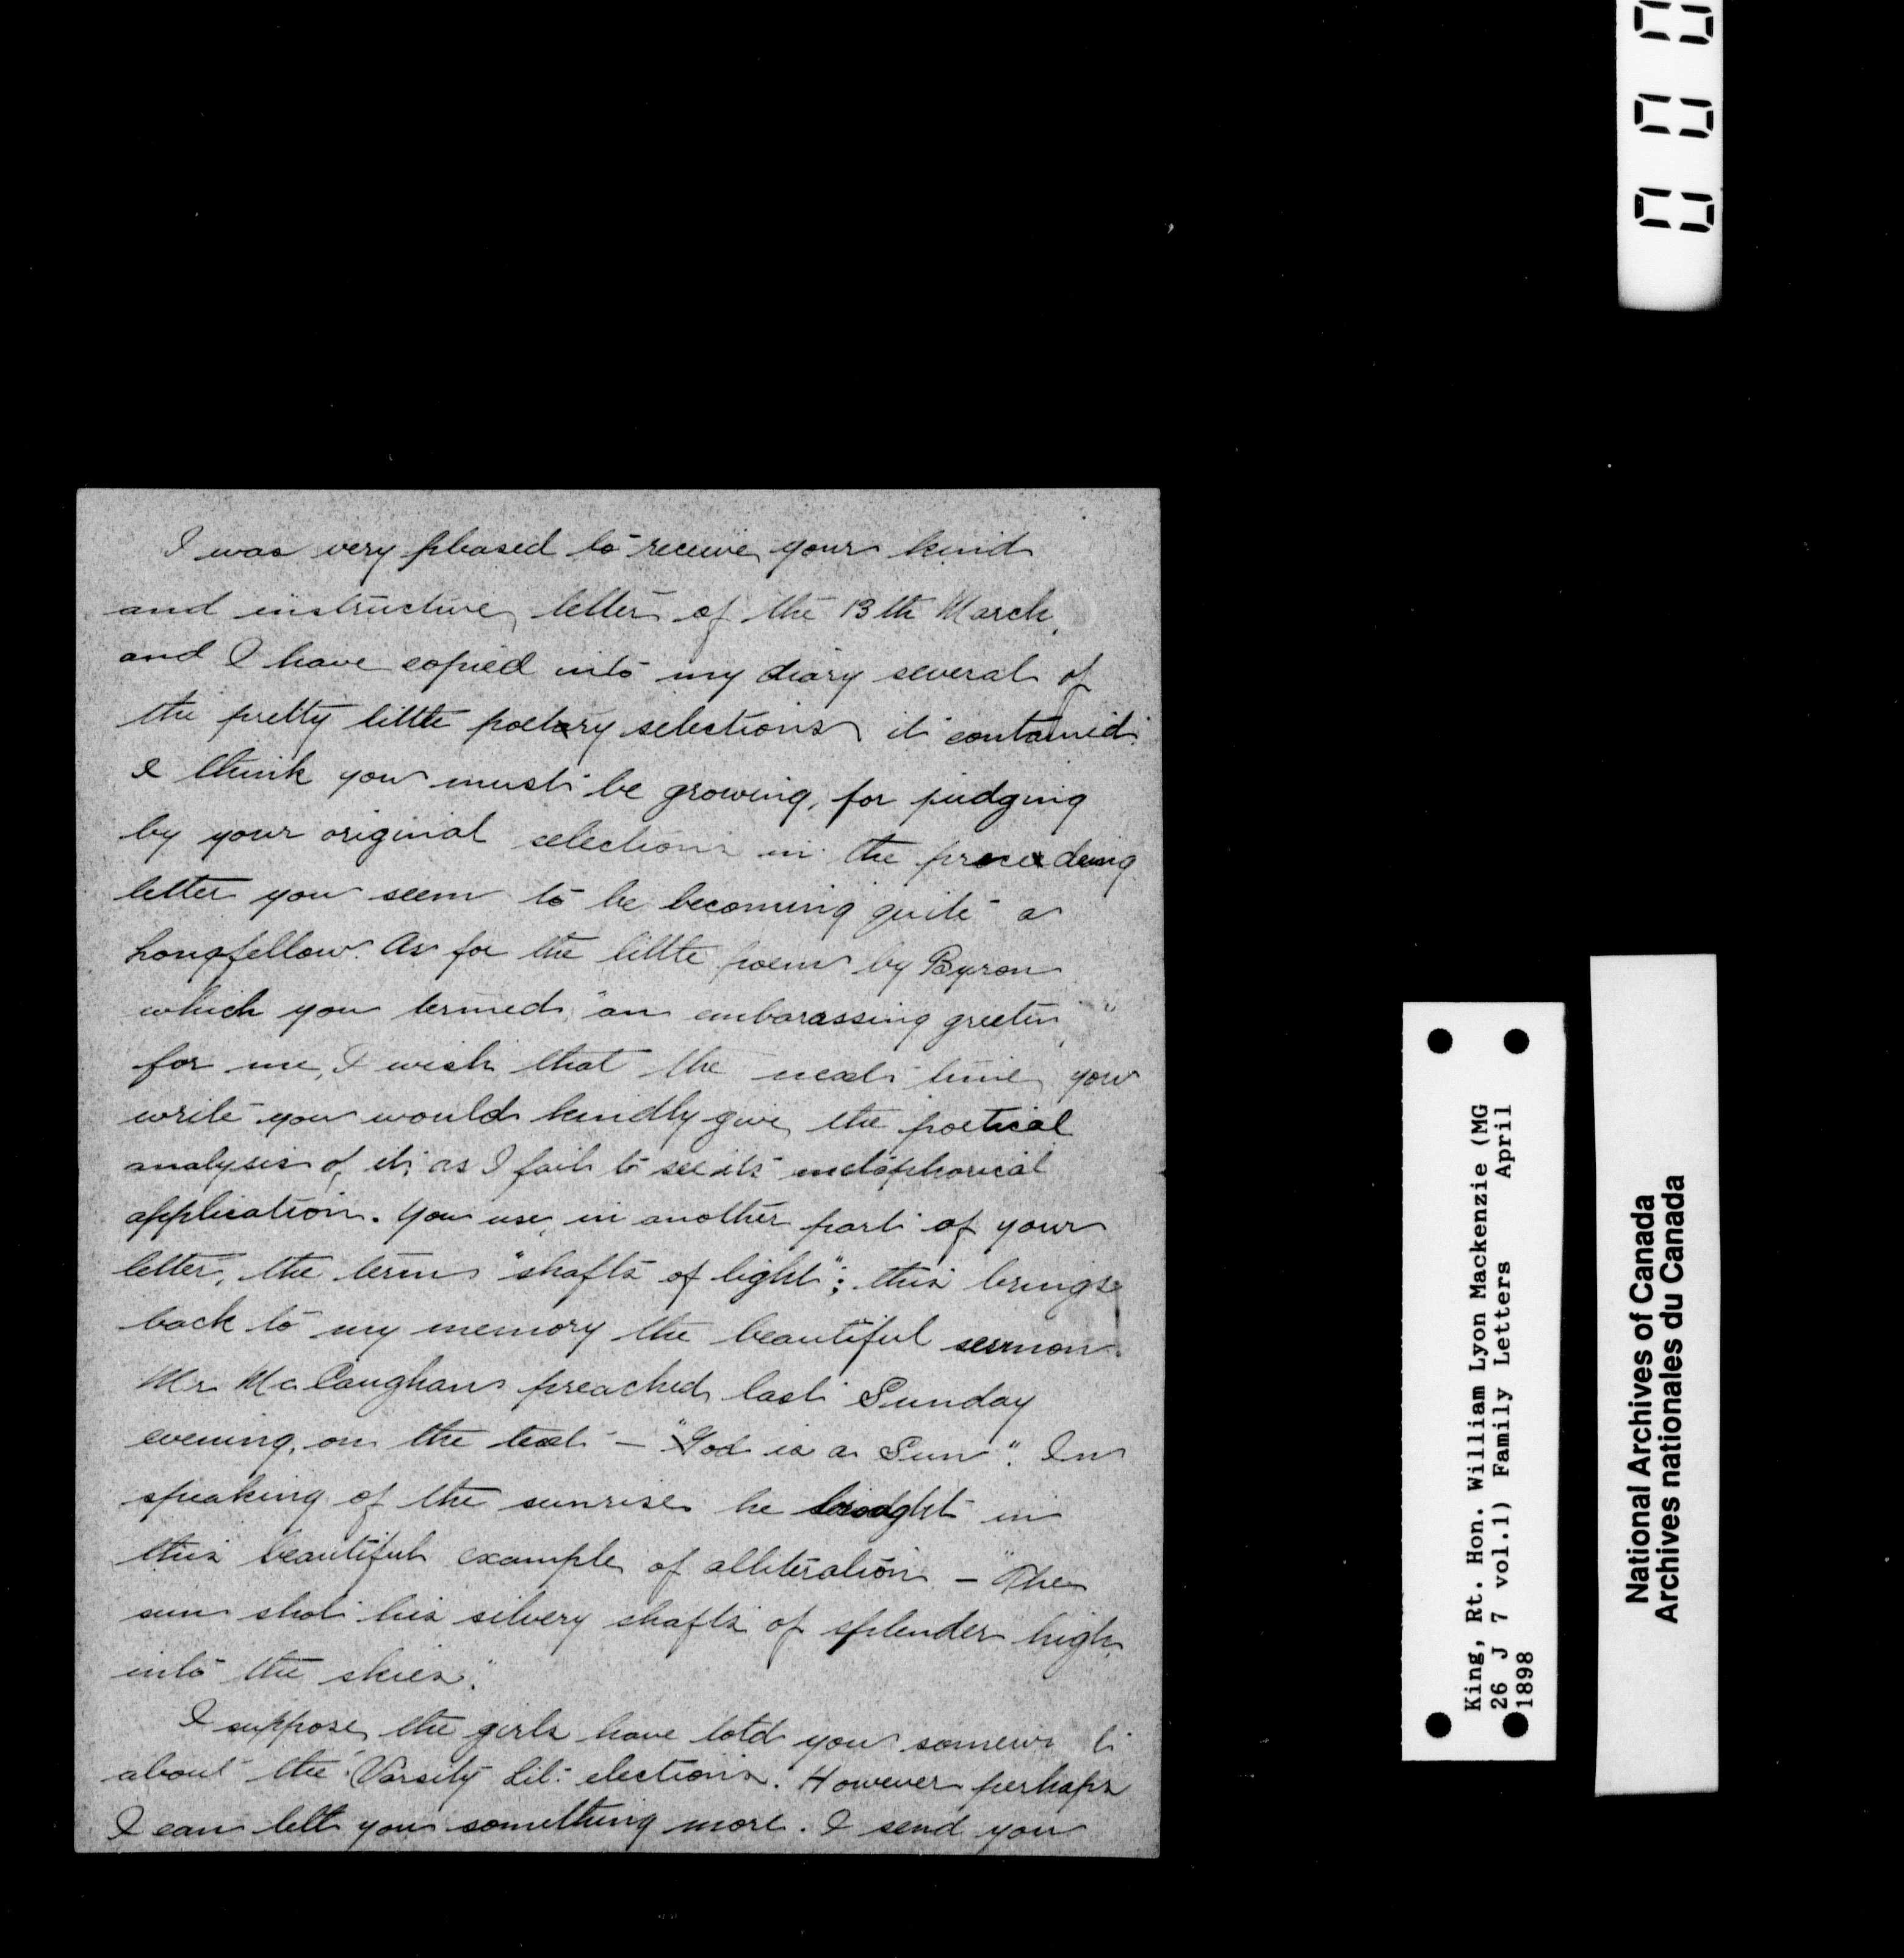 I was very pleased to receive your kind
and instructive letter of the 13th March,
and I have copied into my diary several of
the pretty little poetry selections it contained.
I think you must be growing, for judging
by your original selections in the preceding
letter you seem to be becoming quite a
Longfellow. As for the little poem by Byron
which you termed "an embarassing greetin "
for me, I wish that the next time you
write you would kindly give the poetical
analysis of it; as I fail to see its metaphorical
application. You use, in another part of your
letter, the term "shafts of light"; this brings
back to my memory the beautiful sermon
Mr. McCaughan preached last Sunday
evening, on the text – "God is a Sun". In
speaking of the sunrise he brought in
this beautiful example of alliteration – "The
sun shot his silvery shafts of splender high
into the skies."
I suppose the girls have told you
about the Varsity Lit. elections. However perhaps
I can tell you something more. I send you
King, Rt. Hon. William Lyon Mackenzie (MG
26 J 7 vol.1) Family Letters April
1898
National Archives of Canada
Archives nationales du Canada
0 0 0